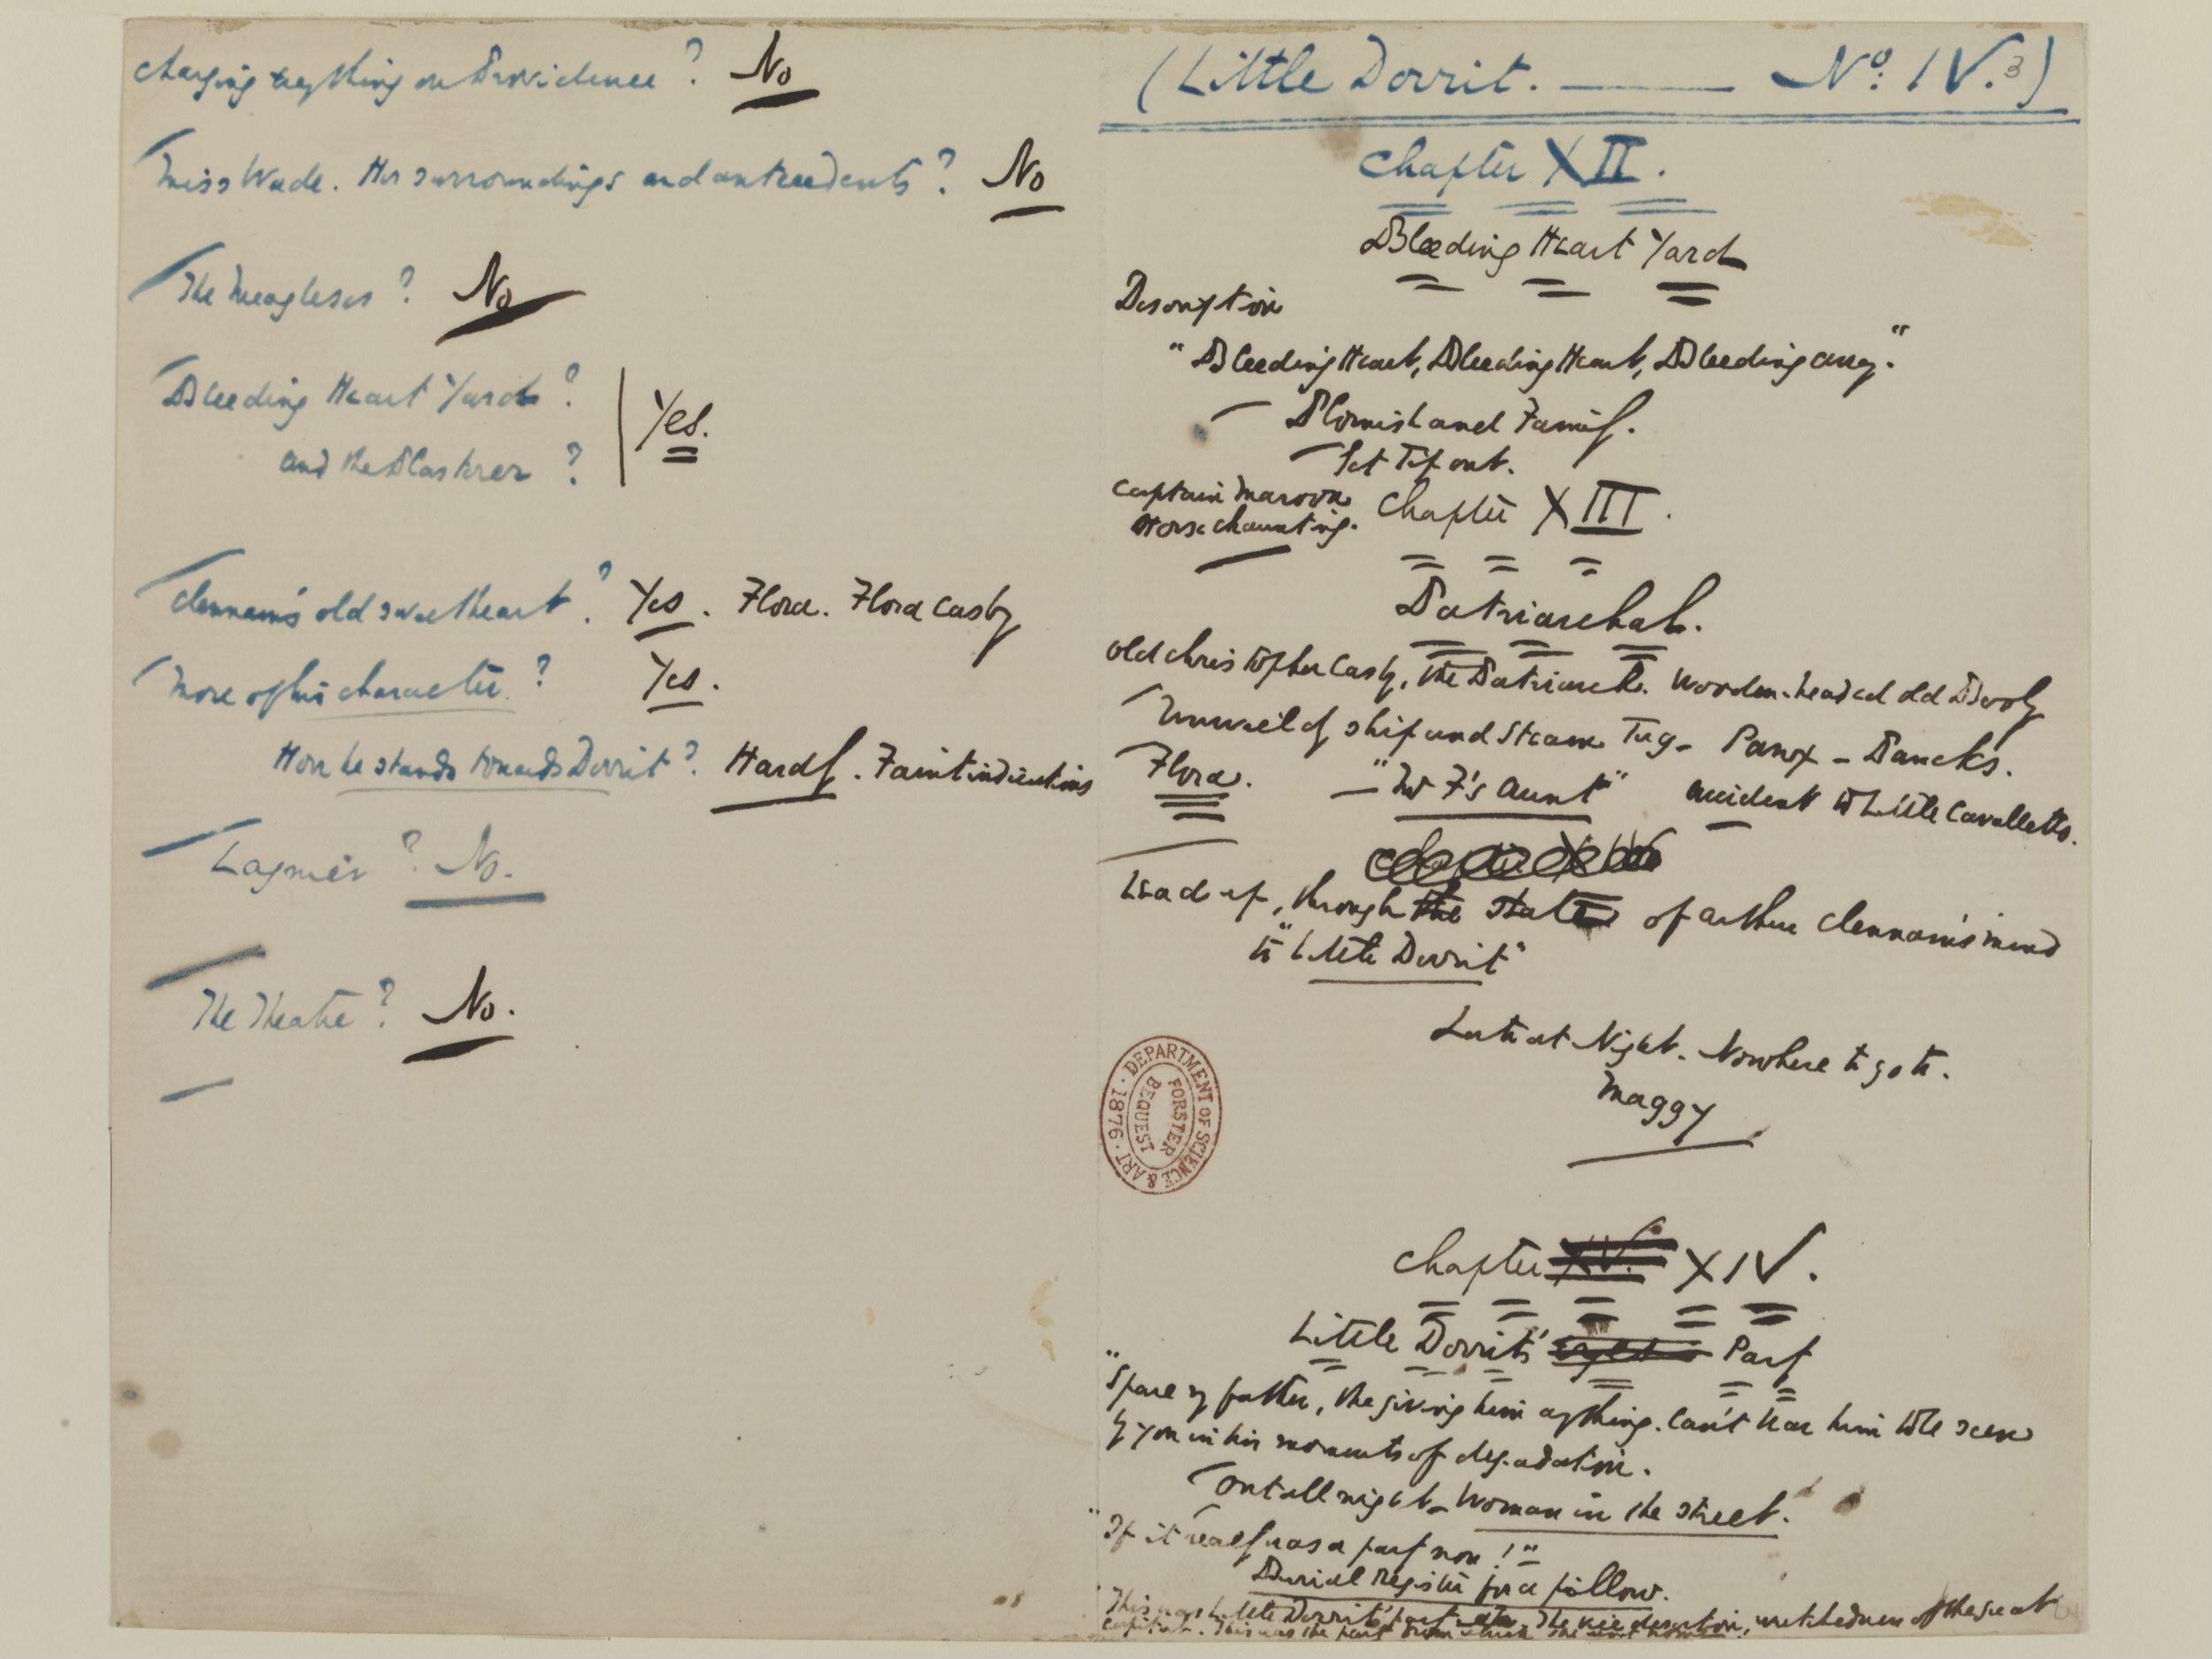 charging anything on Providence? No
Miss Wade. Her surroundings and antecedents? No
The Meagleses? No
Bleeding Heart Yard?
and the Plasterer?
Yes.
Clennam's old sweetheart? Yes. Flora. Flora Casby
More of his character? Yes.
How he stands towards Dorrit? Hardly. Faint indications
Lagnier? No.
The Theatre? No.
(Little Dorrit. — No. IV. 3)
Chapter XII.
Bleeding Heart Yard
Description
"Bleeding Heart, Bleeding Heart, Bleeding away."
Plornish and Family.
Let Tip out.
Captain Maroon
Horse chaunting.
Chapter XIII.
Patriarchal.
Old Christopher Casby, the Patriarch. Wooden-headed old Booby
Unwieldy ship and Steam Tug - Panx - Pancks.
Flora. - "Mr F's Aunt" accident to Little Cavalletto.
Lead up, through the state of Arthur Clennam's mind
to "Little Dorrit"
Late at Night. Nowhere to go to.
Maggy
DEPARTMENT OF SCIENCE & ART · 1876 ·
FORSTER
BEQUEST
Chapter XV. XIV.
Little Dorrit's Party
"Spare my father, the giving him anything. Can't bear him to be seen
by you in his moments of degradation.
Out all night - Woman in the street.
"If it really was a party now!"
Burial Register for a pillow.
This was Little Dorrit's party. The vice desertion, wretchedness of the great
capital. This was the party from which she went home